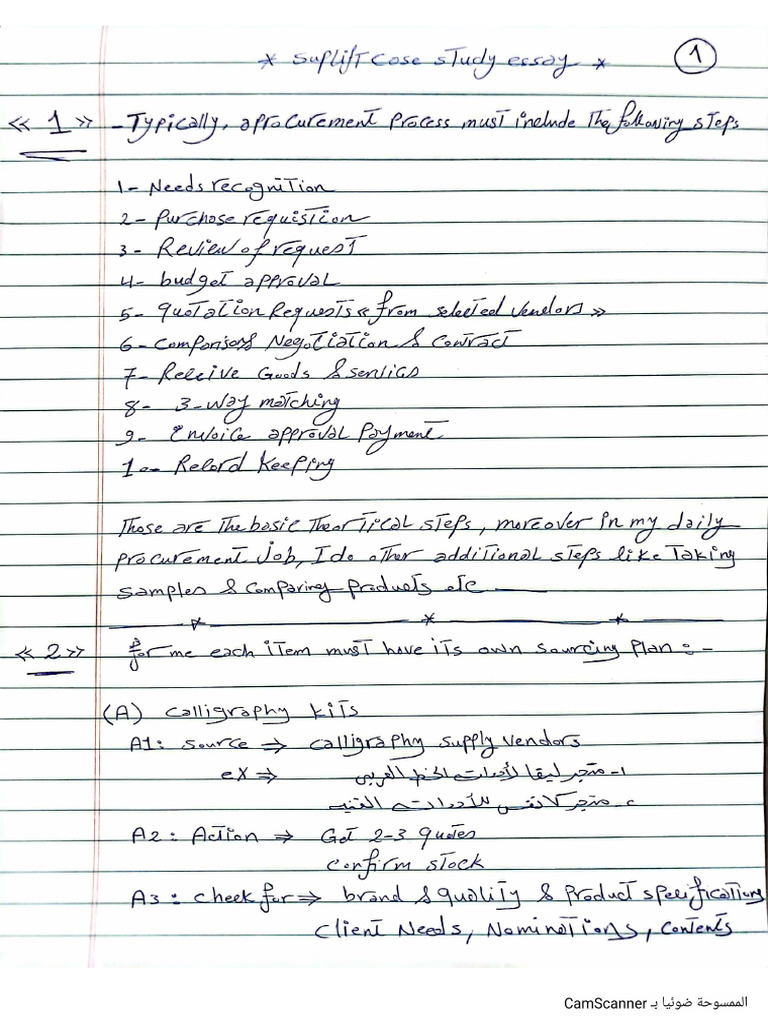 * Suplift Case study essay *
1
«1» - Typically, a procurement process must include the following steps
1- Needs recognition
2- Purchase requistion
3- Review of request
4- budget approval
5- Quotation Requests « from selected vendors »
6- Comparison Negotiation & Contract
7- Receive Goods & services
8- 3-way matching
9- Invoice approval Payment
10- Record Keeping
Those are the basic theortical steps, moreover in my daily
procurement Job, I do other additional steps like taking
samples & comparing products etc
* * *
«2» for me each item must have its own sourcing Plan : -
(A) Calligraphy kits
A1: source ⇒ calligraphy supply vendors
ex ⇒ ١- متجر ليقا لأدوات الخط العربي
٢- متجر كانفس للأدوات الفنيه
A2: Action ⇒ Get 2-3 quotes
confirm stock
A3: check for ⇒ brand & quality & product specifications
Client Needs, Nominations, Contents
الممسوحة ضوئيا بـ CamScanner